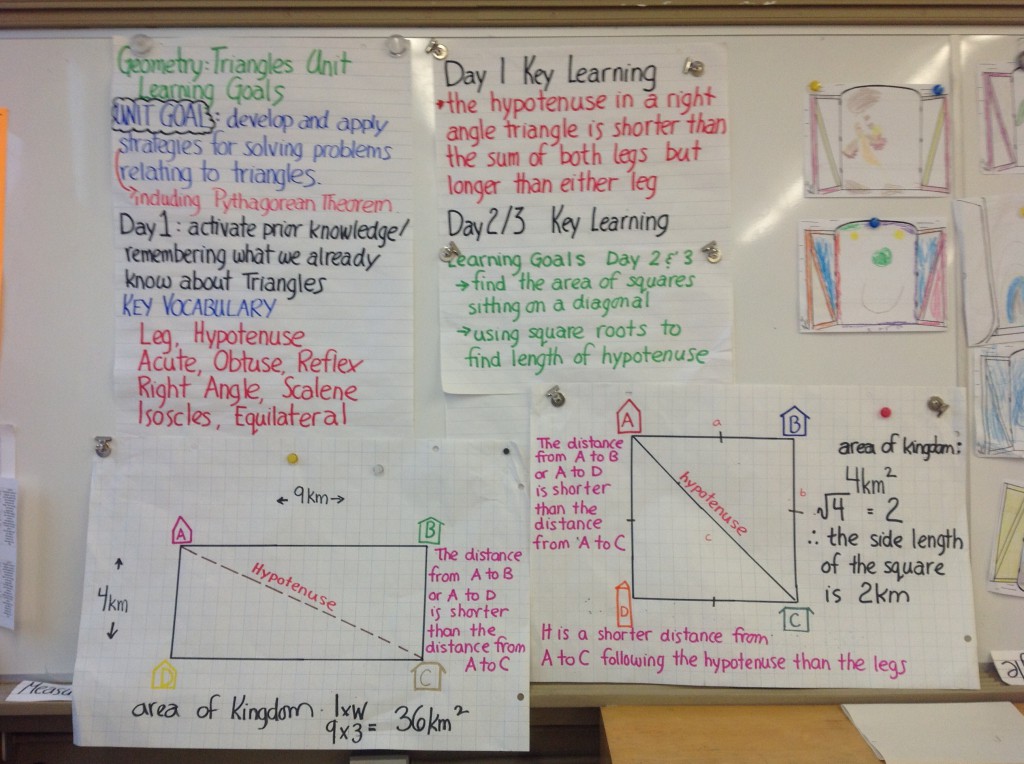 Geometry: Triangles Unit
Learning Goals
UNIT GOAL: develop and apply
strategies for solving problems
relating to triangles.
including Pythagorean Theorem
Day 1: activate prior knowledge/
remembering what we already
know about Triangles
KEY VOCABULARY
Leg, Hypotenuse
Acute, Obtuse, Reflex
Right Angle, Scalene
Isoscles, Equilateral
Day 1 Key Learning
the hypotenuse in a right
angle triangle is shorter than
the sum of both legs but
longer than either leg
Day 2/3 Key Learning
Learning Goals Day 2 & 3
→ find the area of squares
sitting on a diagonal
→ using square roots to
find length of hypotenuse
← 9km →
A
B
4km
Hypotenuse
The distance
from A to B
or A to D
is shorter
than the
distance from
A to C
D
C
area of Kingdom. l x w
9 x 3 = 36km²
A
a
B
The distance
from A to B
or A to D
is shorter
than the
distance
from A to C
hypotenuse
b
c
D
C
area of kingdom:
4km²
√4 = 2
∴ the side length
of the square
is 2km
It is a shorter distance from
A to C following the hypotenuse than the legs